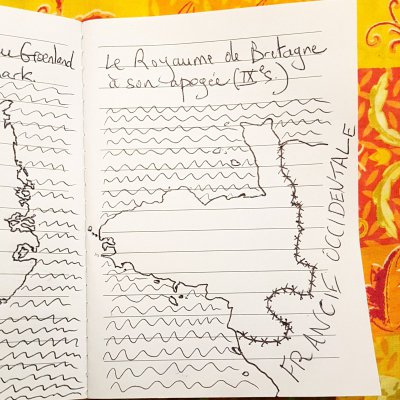 au Groenland
mark
Le Royaume de Bretagne
à son apogée (IXe s)
FRANCIE OCCIDENTALE